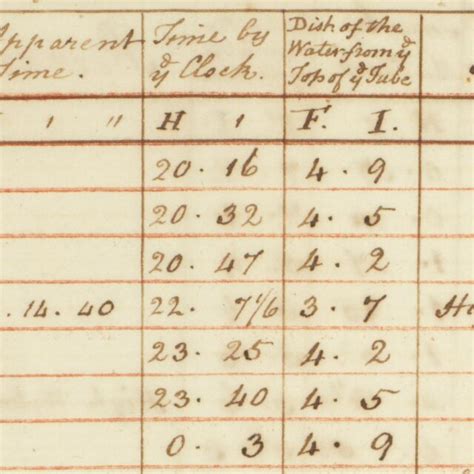 Apparent Time by Dist. of the
Time. ye Clock. Water from ye
Top of ye Tube
' " H ' F. I.
20. 16 4. 9
20. 32 4. 5
20. 47 4. 2
. 14. 40 22. 7 1/6 3. 7
23. 25 4. 2
23. 40 4. 5
0. 3 4. 9